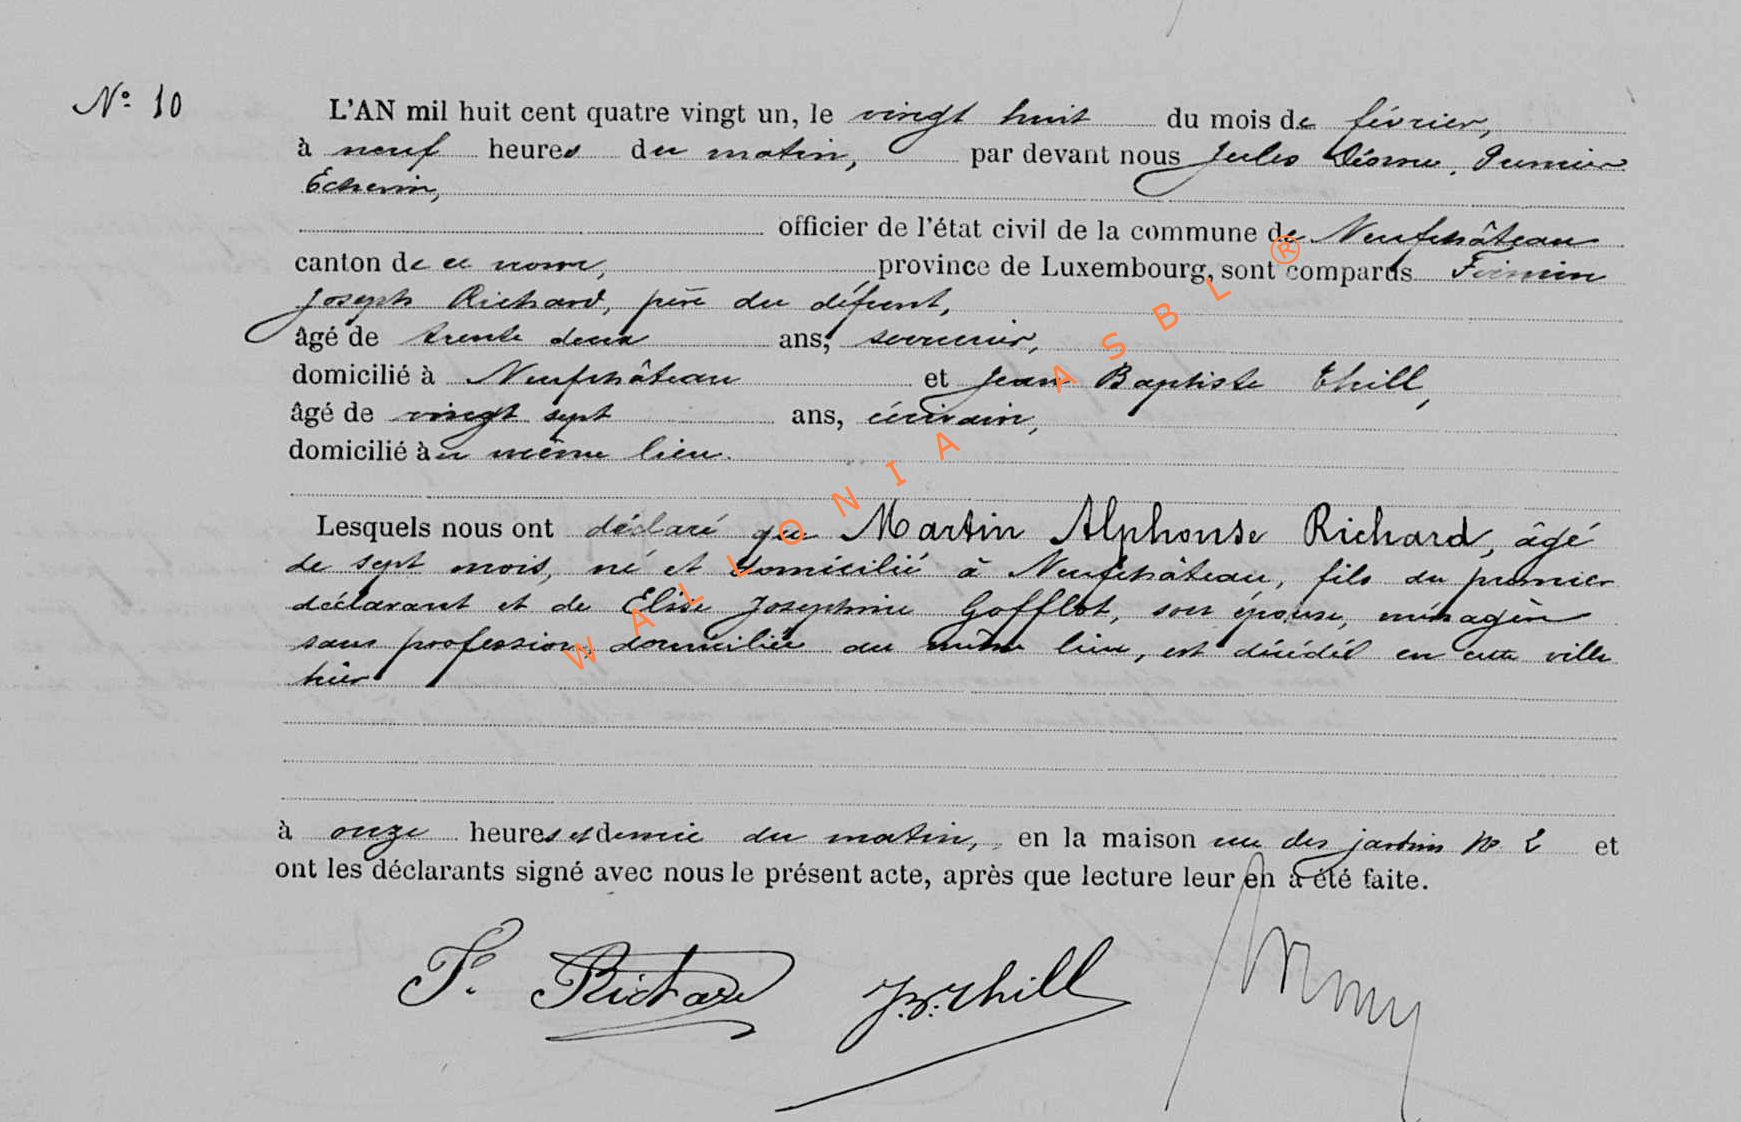 N° 10
L'AN mil huit cent quatre vingt un, le vingt huit du mois de février,
à neuf heures du matin, par devant nous Jules Premier
Echevin,
officier de l'état civil de la commune de Neufchâteau
canton de ce nom, province de Luxembourg, sont comparus Firmin
Joseph Richard, père du défunt,
âgé de trente deux ans, serrurier,
domicilié à Neufchâteau et Jean Baptiste Thill,
âgé de vingt sept ans, écrivain,
domicilié au même lieu.
Lesquels nous ont déclaré que Martin Alphonse Richard, âgé
de sept mois, né et domicilié à Neufchâteau, fils du premier
déclarant et de Elise Josephine Gofflot, son épouse, ménagère
sans profession, domiciliée au même lieu, est décédé en cette ville
hier
à onze heures et demie du matin, en la maison rue des jardins N° 2 et
ont les déclarants signé avec nous le présent acte, après que lecture leur en a été faite.
F. Richard J.B. Thill
WALLONIA ASBL ®